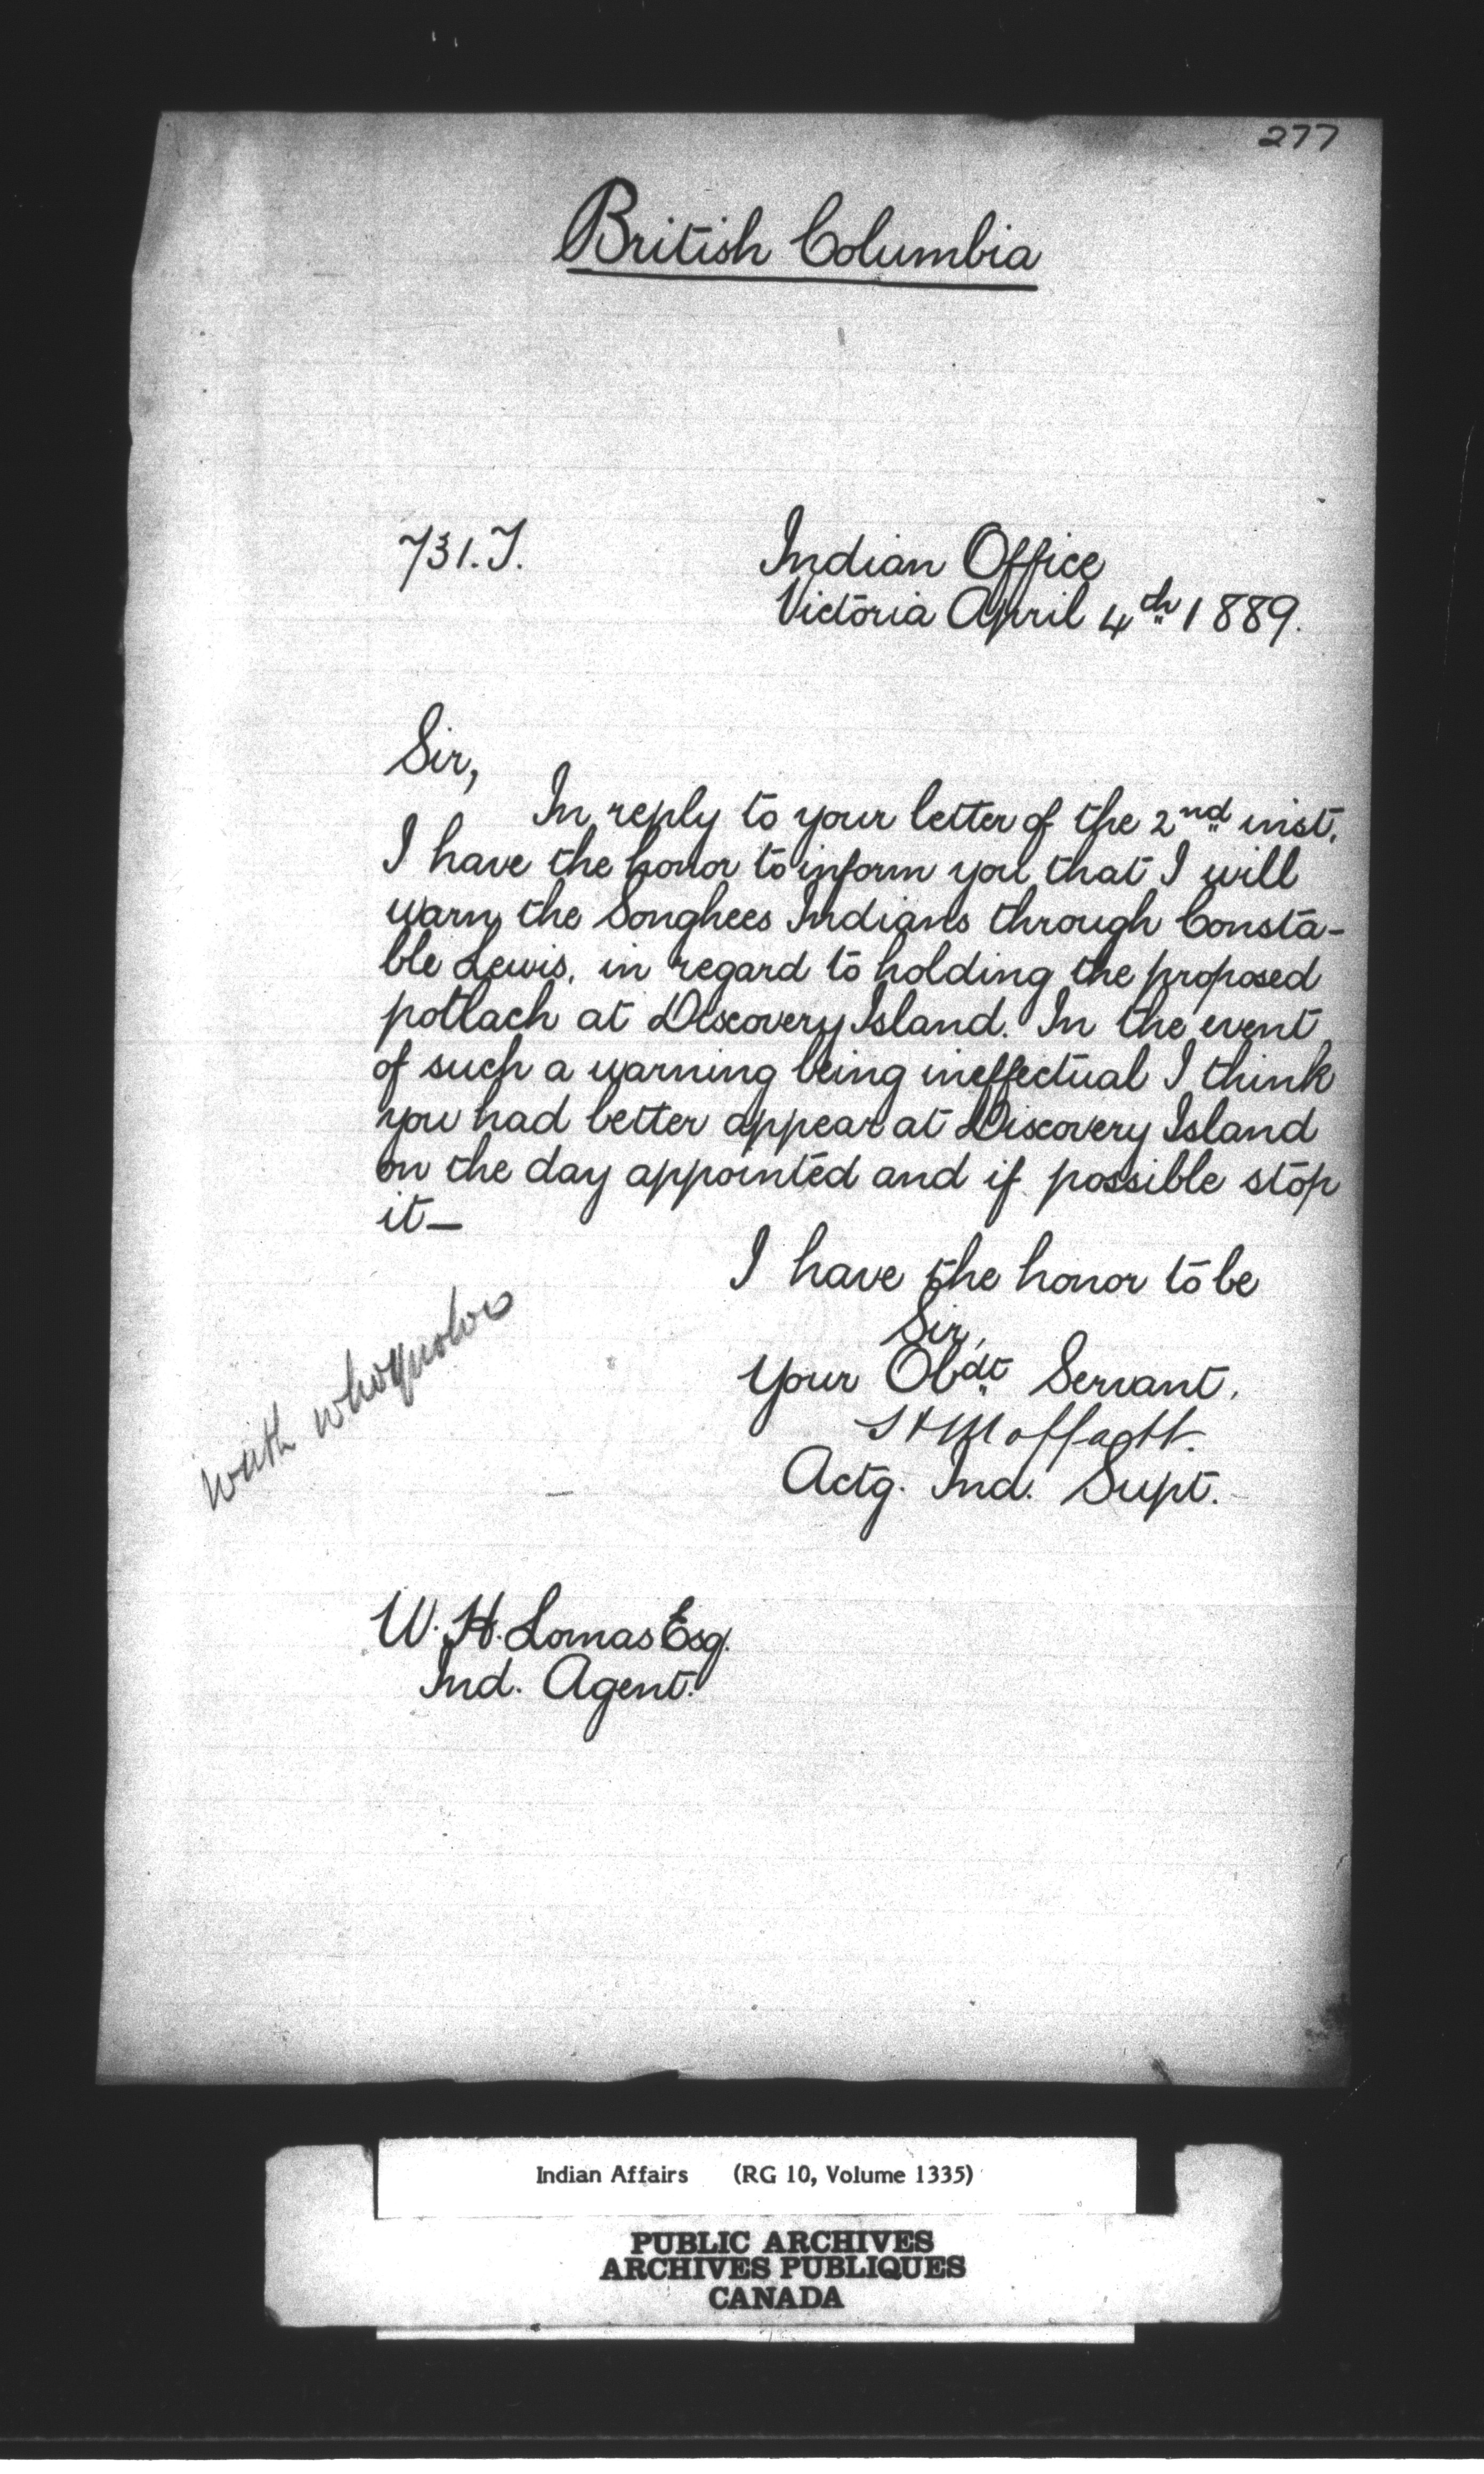 277
British Columbia
731.J.
Indian Office
Victoria April 4th 1889.
Sir,
In reply to your letter of the 2nd inst.
I have the honor to inform you that I will
warn the Songhees Indians through Consta-
ble Lewis, in regard to holding the proposed
potlach at Discovery Island. In the event
of such a warning being ineffectual I think
you had better appear at Discovery Island
on the day appointed and if possible stop
it—
I have the honor to be
Sir,
Your Obdt Servant,
Moffatt.
Actg. Ind. Supt.
with
W. H. Lomas Esq.
Ind. Agent.
Indian Affairs (RG 10, Volume 1335)
PUBLIC ARCHIVES
ARCHIVES PUBLIQUES
CANADA